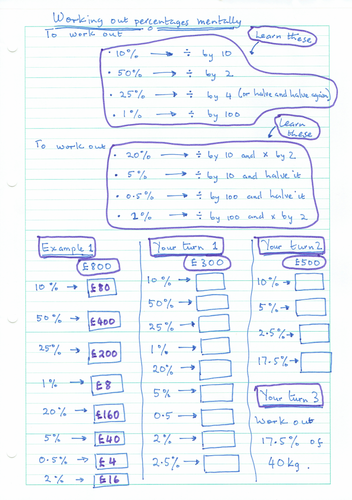 Working out percentages mentally
To work out
Learn these
• 10% → ÷ by 10
• 50% → ÷ by 2
• 25% → ÷ by 4 (or halve and halve again)
• 1% → ÷ by 100
Learn these
To work out
• 20% → ÷ by 10 and × by 2
• 5% → ÷ by 10 and halve it
• 0.5% → ÷ by 100 and halve it
• 2% → ÷ by 100 and × by 2
Example 1
£800
10% → £80
50% → £400
25% → £200
1% → £8
20% → £160
5% → £40
0.5% → £4
2% → £16
Your turn 1
£300
10% →
50% →
25% →
1% →
20% →
5% →
0.5 →
2% →
2.5% →
Your turn 2
£500
10% →
5% →
2.5% →
17.5% →
Your turn 3
Work out
17.5% of
40kg.